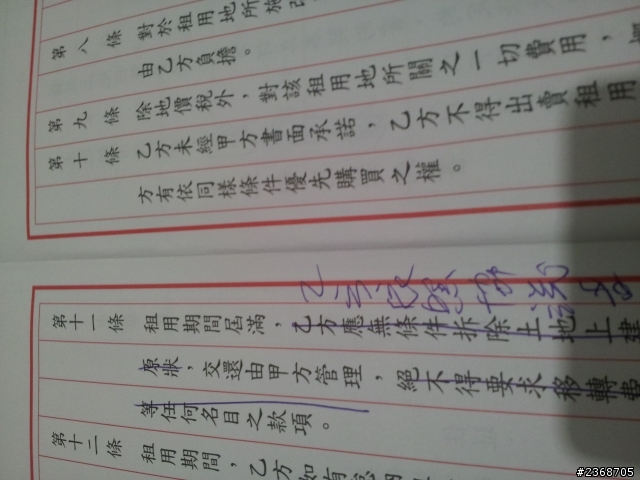 第八條 對於租用地所施改
由乙方負擔。
第九條 除地價稅外，對該租用地所關之一切費用，
第十條 乙方未經甲方書面承諾，乙方不得出賣租用
方有依同樣條件優先購買之權。
乙方
第十一條 租用期間屆滿，乙方應無條件拆除土地上建
原狀，交還由甲方管理，絕不得要求移轉費
等任何名目之款項。
第十二條 租用期間，乙方如有
#2368705